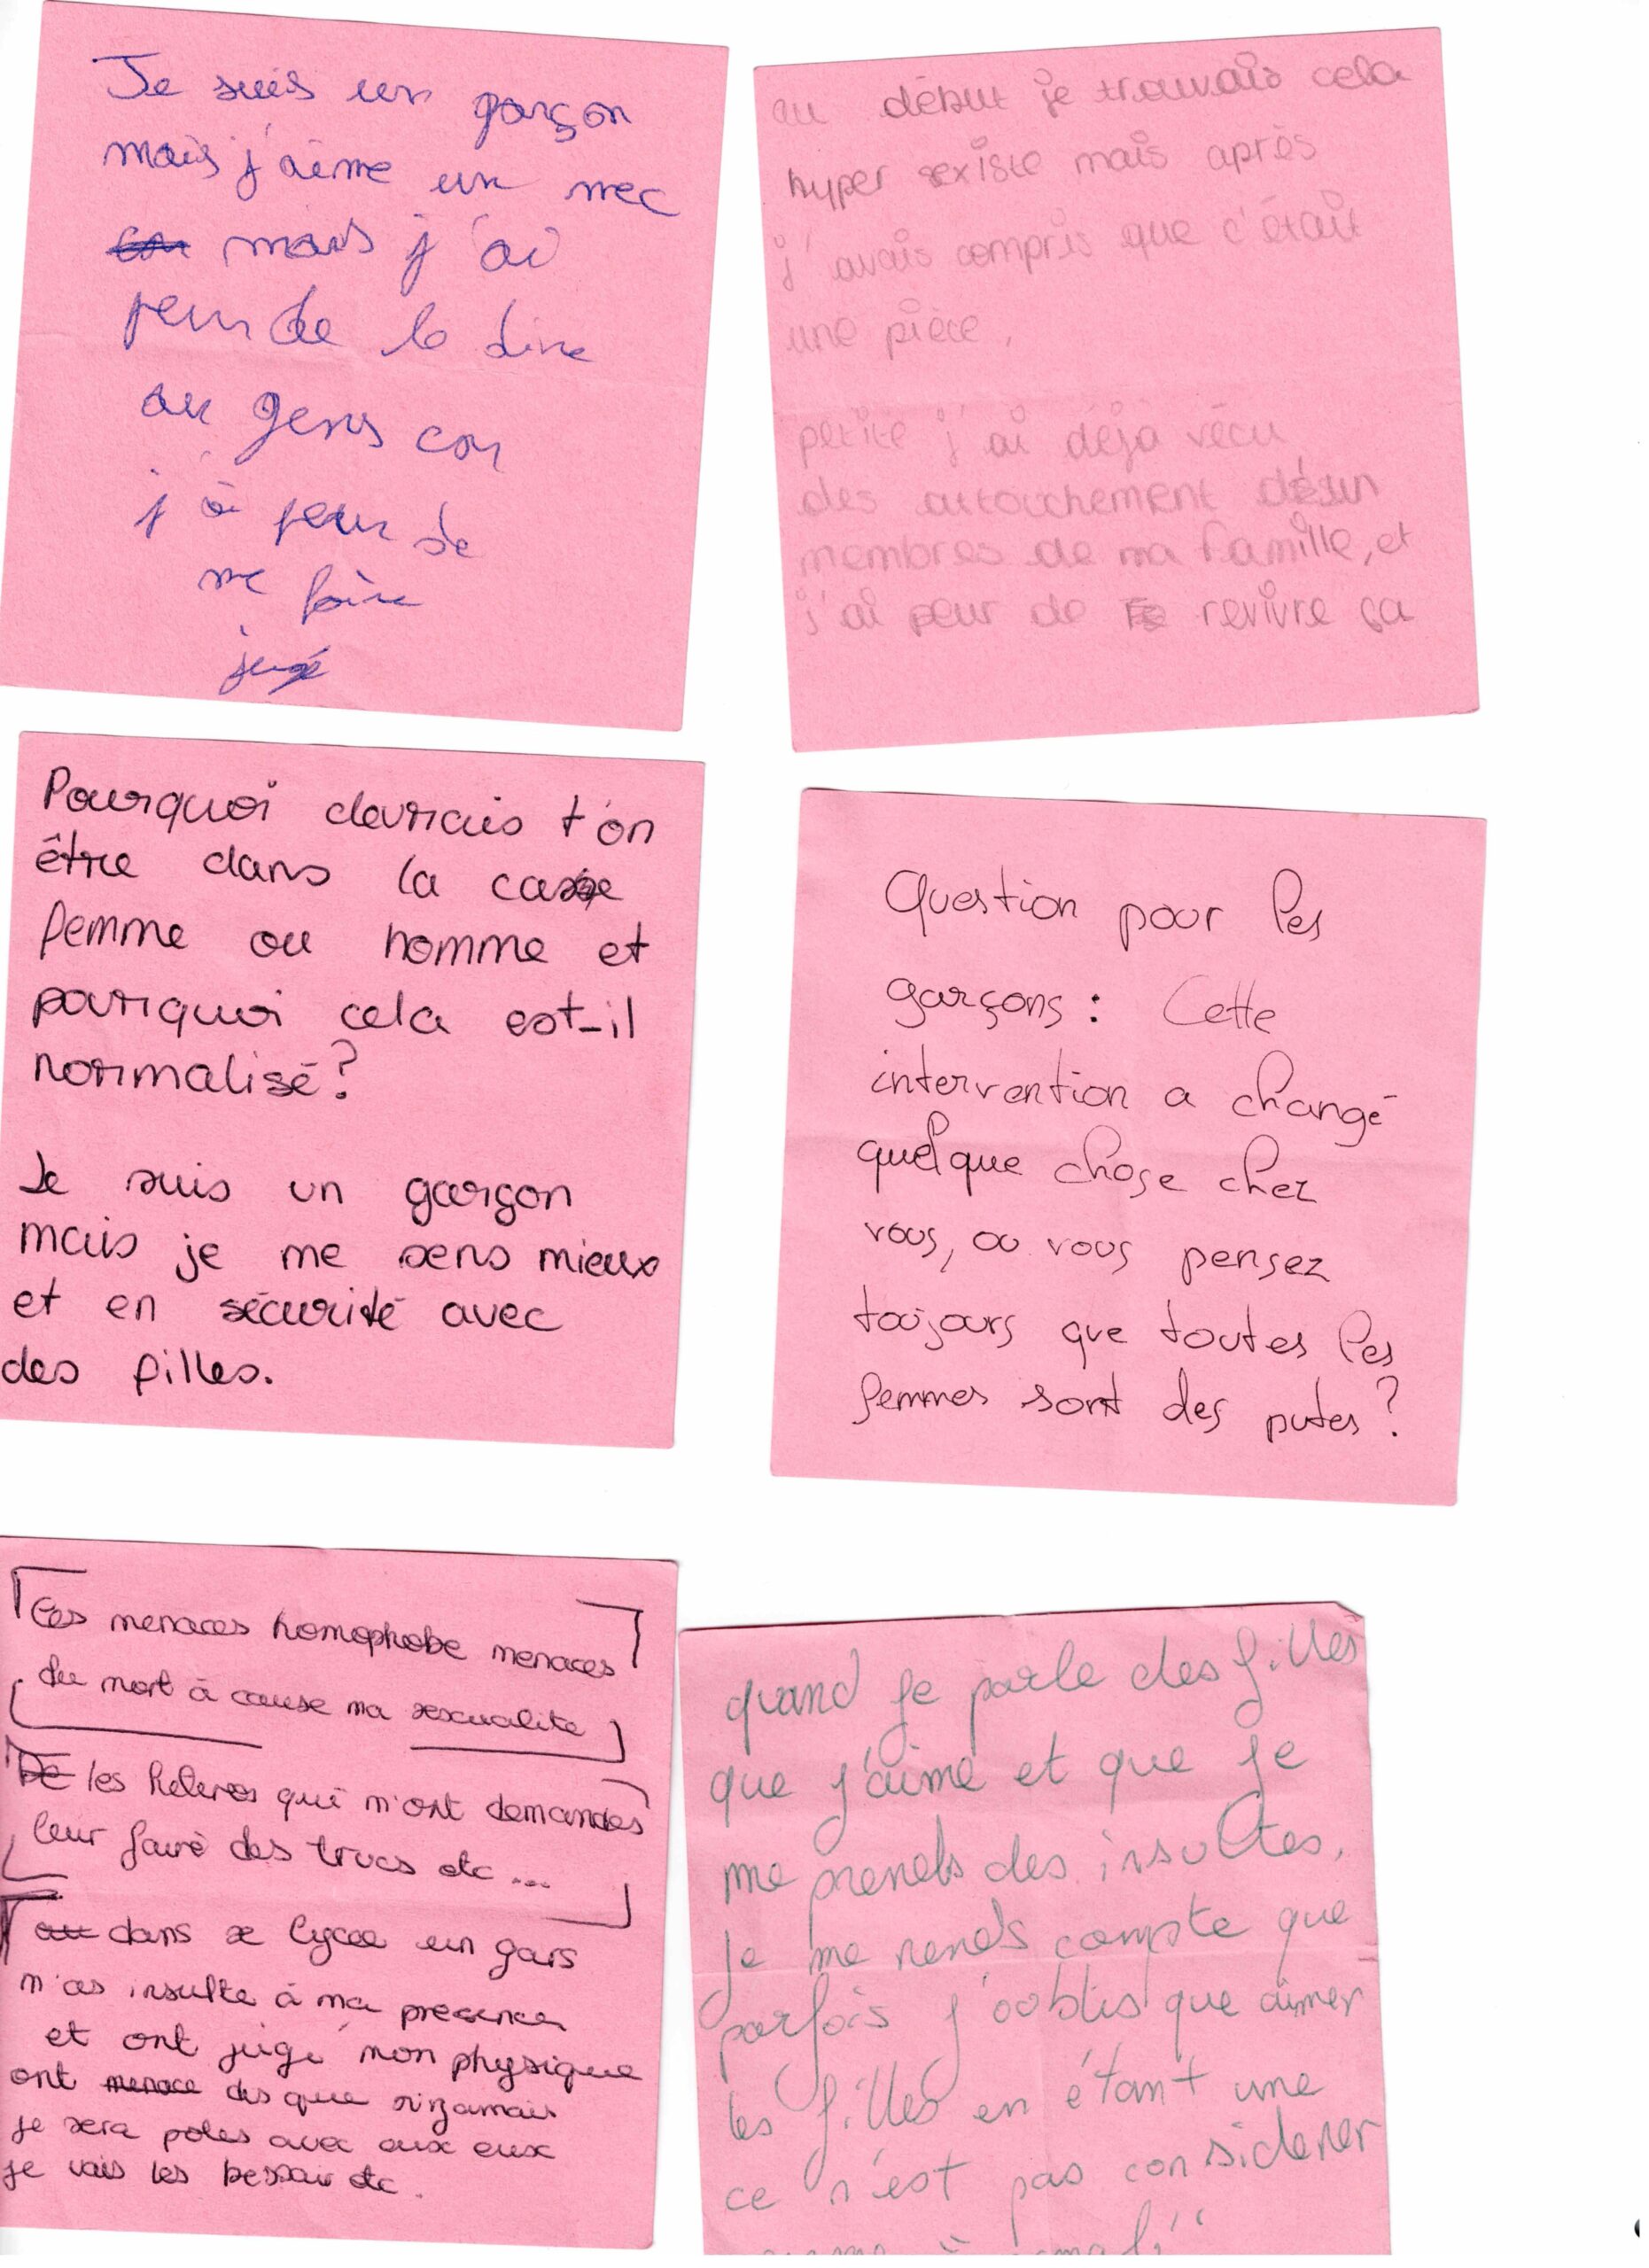 Je suis un garçon
mais j'aime un mec
mais j'ai
peur de le dire
au gens car
j'ai peur de
me faire
jugé
au début je trouvais cela
hyper sexiste mais après
j'avais compris que c'était
une pièce,
petite j'ai déjà vécu
des attouchement
membres de ma famille, et
j'ai peur de revivre ça
Pourquoi devrais t'on
être dans la case
femme ou homme et
pourquoi cela est-il
normalisé?
Je suis un garçon
mais je me sens mieux
et en sécurité avec
des filles.
Question pour les
garçons : Cette
intervention a changé
quelque chose chez
vous, ou vous pensez
toujours que toutes les
femmes sont des putes ?
menaces homophobe menaces
du mort à cause ma sexualite
De les qui m'ont demandes
leur faire des trucs etc ...
au dans se lycee un gars
m'as insulte à ma presence
et ont jugé mon physique
ont menace dis que si jamais
je sera avec eux
je vais les etc.
quand je parle des filles
que j'aime et que je
me prends des insultes,
je me rends compte que
parfois j'oublis que aimer
les filles en étant une
ce n'est pas considerer